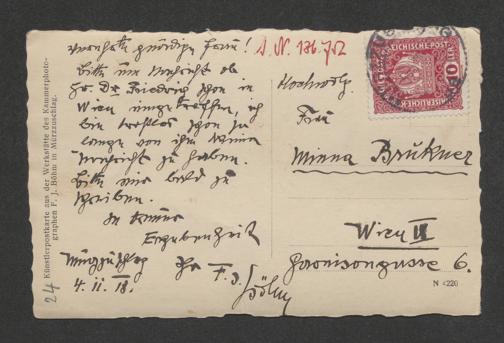 Verehrte gnädige Frau! I. N. 136.752
Bitte um Nachricht ob
Hr. Dr. Friedrich schon in
Wien eingetroffen, ich
bin trostlos schon so
lange von ihm keine
Nachricht zu haben.
Bitte mir bald zu
schreiben.
In treuer
Ergebenheit
Ihr F. J.
Böhm
Mürzzuschlag
4. II. 18.
Hochwohlg.
Frau
Minna Brukner
Wien IX
Garnisongasse 6.
N 4220
Künstlerpostkarte aus der Werkstätte des Kammerphoto-
graphen F. J. Böhm in Mürzzuschlag.
24
10